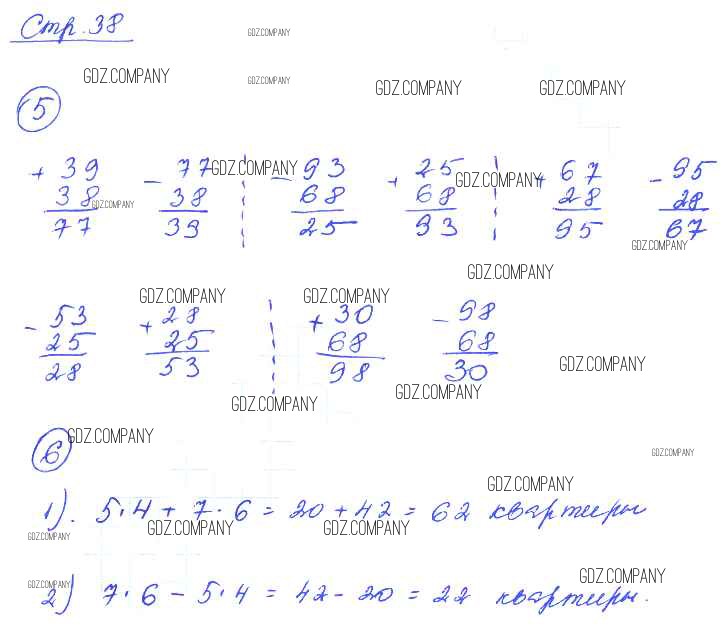 Стр. 38
GDZ.COMPANY
GDZ.COMPANY
GDZ.COMPANY
GDZ.COMPANY
GDZ.COMPANY
5
+ 39 - 77 GDZ.COMPANY - 93 + 25 GDZ.COMPANY + 67 - 95
38 GDZ.COMPANY 38 68 68 28 28
77 39 25 93 95 67
GDZ.COMPANY
GDZ.COMPANY
GDZ.COMPANY GDZ.COMPANY
- 53 + 28 + 30 - 98
25 25 68 68
28 53 98 30
GDZ.COMPANY
GDZ.COMPANY
GDZ.COMPANY
GDZ.COMPANY
6
GDZ.COMPANY
GDZ.COMPANY
1). 5·4 + 7·6 = 20 + 42 = 62 квартиры
GDZ.COMPANY GDZ.COMPANY GDZ.COMPANY
GDZ.COMPANY GDZ.COMPANY
2) 7·6 - 5·4 = 42 - 20 = 22 квартиры.